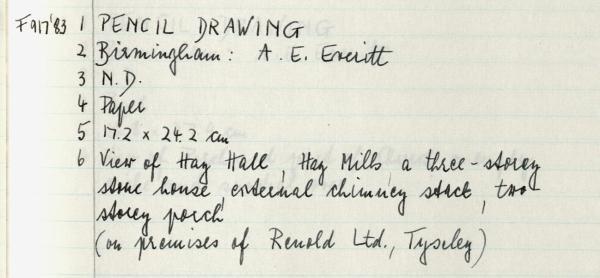 F917'83 1 PENCIL DRAWING
2 Birmingham: A. E. Everitt
3 N.D.
4 Paper
5 17.2 x 24.2 cm
6 View of Hay Hall, Hay Mills, a three-storey
stone house, external chimney stack, two
storey porch
(on premises of Renold Ltd., Tyseley)